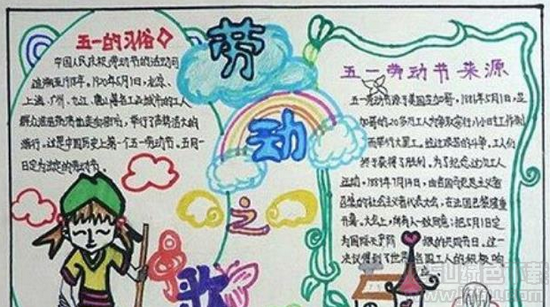 五一的习俗
中国人民庆祝劳动节的活动可
追溯至1918年。1920年5月1日,北京、
上海、广州、九江、唐山等各工业城市的工人
群众浩浩荡荡地走向街市,举行了声势浩大的
游行。这是中国历史上第一个五一劳动节。五月一
日定为法定的劳动节。
劳
动
之
歌
五一劳动节来源
五一劳动节源于美国芝加哥,
加哥的20多万工人为争取实行八小时工作制
而举行大罢工,经过艰苦的斗争,工人们
终于获得了胜利。为了纪念这次工人
运动,1889年7月14日,由各国马克思主义者
召集的社会主义者代表大会,在法国巴黎隆重
开幕。大会上,所有人一致同意:把5月1日定
为国际无产阶级的共同节日。这一
决议得到了世界各国工人的积极的